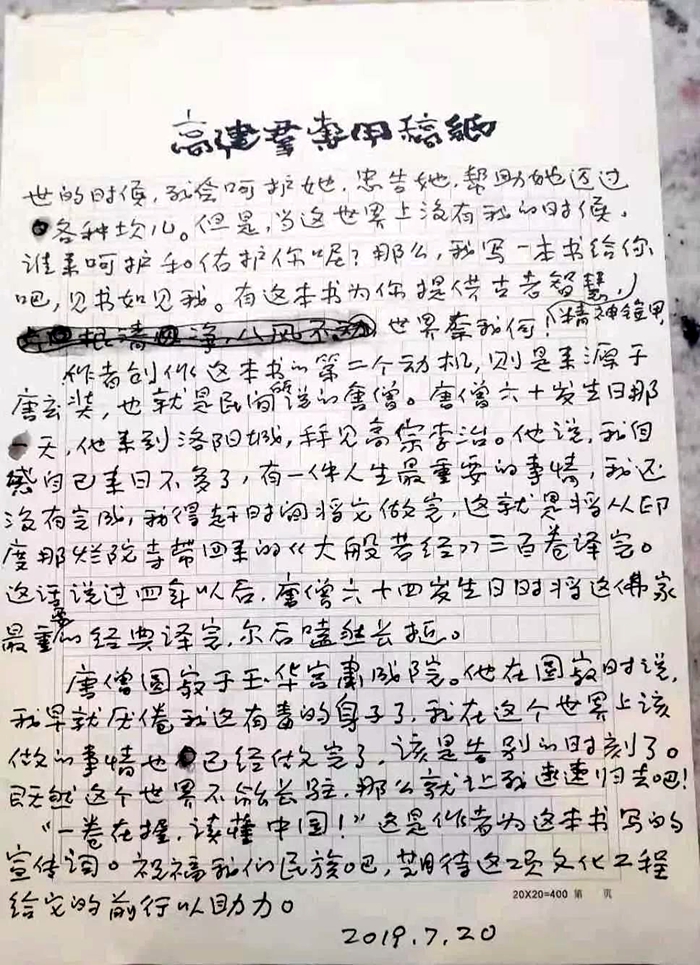 高建群专用稿纸
世的时候，我会呵护她，忠告她，帮助她迈过
各种坎儿。但是，当这世界上没有我的时候，
谁来呵护和佑护你呢？那么，我写一本书给你
吧，见书如见我。有这本书为你提供古老智慧，
精神铠甲
根清 净，八风不动 世界奈我何！
作者创作这本书的第二个动机，则是来源于
唐玄奘，也就是民间所说的唐僧。唐僧六十岁生日那
一天，他来到洛阳城，拜见高宗李治。他说，我自
感自己来日不多了，有一件人生最重要的事情，我还
没有完成，我得赶时间将它做完，这就是将从印
度那烂陀寺带回来的《大般若经》三百卷译完。
这话说过四年以后，唐僧六十四岁生日时将这佛家
最重要的经典译完，尔后嗑然长逝。
唐僧圆寂于玉华宫肃成院。他在圆寂时说，
我早就厌倦我这有毒的身子了，我在这个世界上该
做的事情也已经做完了，该是告别的时刻了。
既然这个世界不能长驻，那么就让我速速归去吧！
“一卷在握，读懂中国！”这是作者为这本书写的
宣传词。祝福我们民族吧，期待这项文化工程
给它的前行以助力。
20X20=400 第 页
2019.7.20